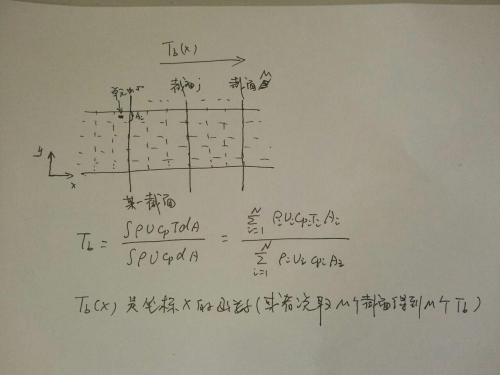 T_b(x)
截面j 截面M
A_i
y
x
某一截面
T_b = ∫ρUC_pTdA / ∫ρUC_pdA = Σ_{i=1}^{N} ρ_iU_iC_{pi}T_iA_i / Σ_{i=1}^{N} ρ_iU_iC_{pi}A_i
T_b(x)是坐标x的函数(取M个截面得到M个T_b)